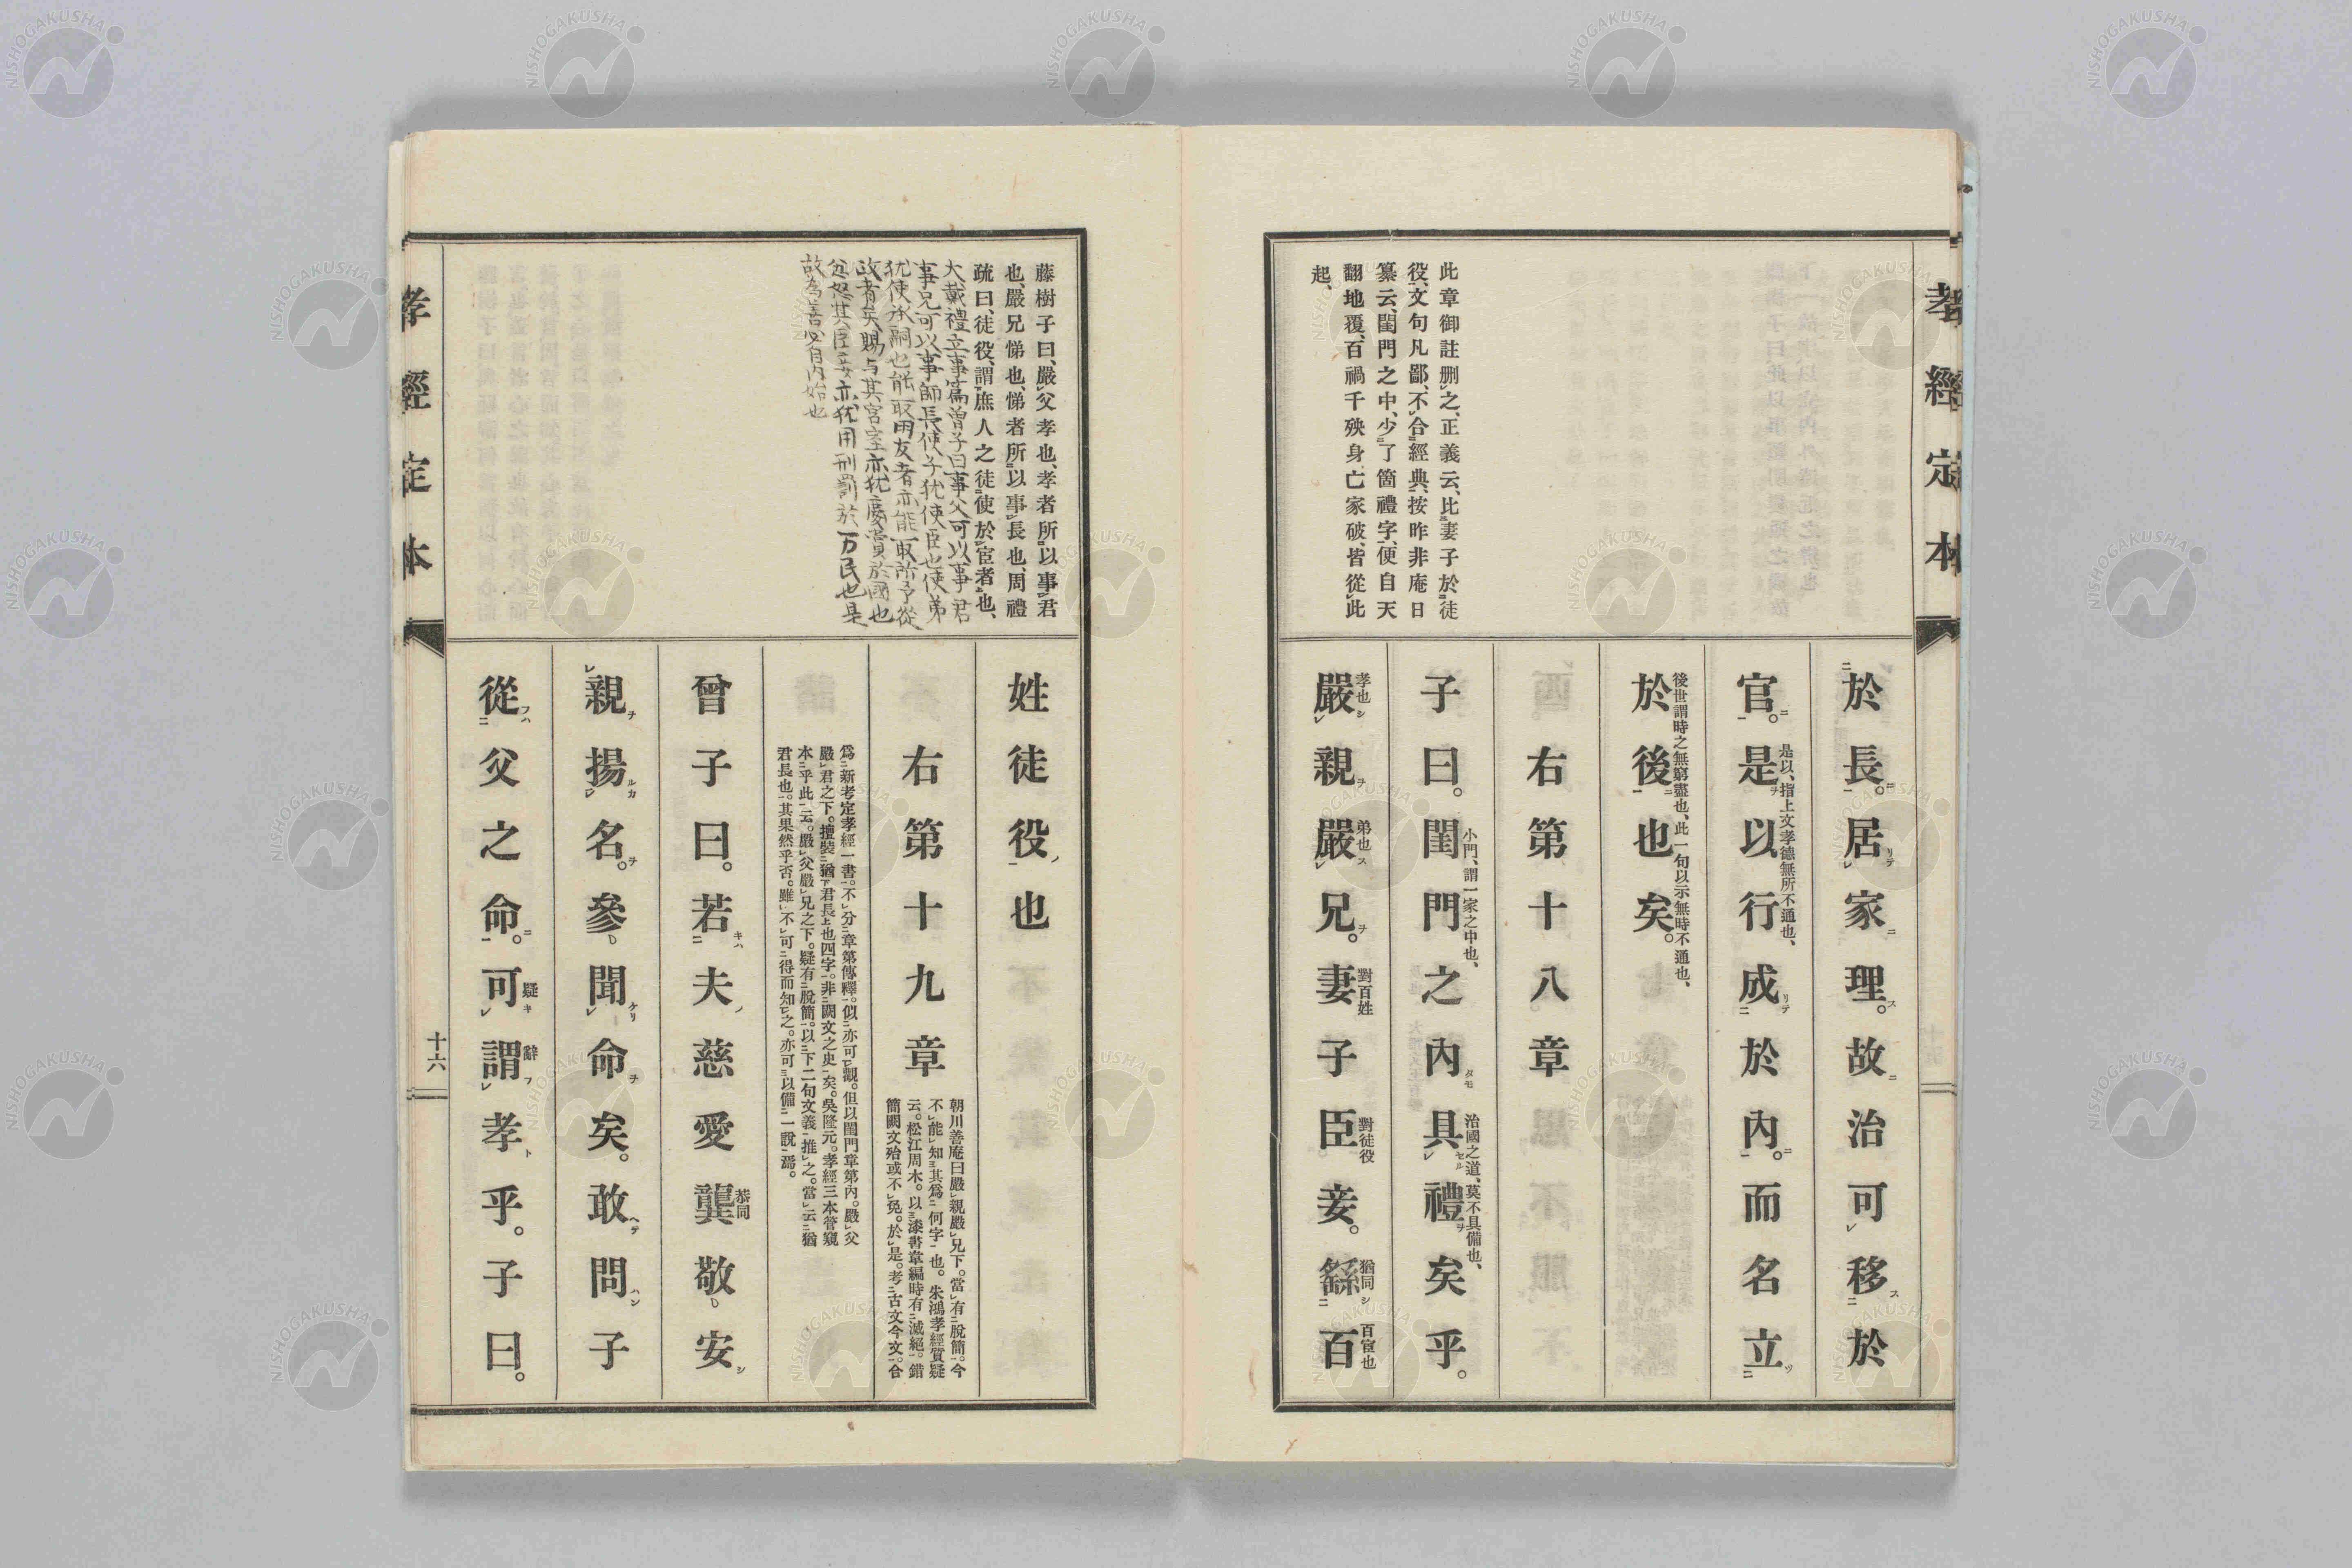 孝經定本
此章御註刪レ之、正義云、比二妻子於徒
役一、文句凡鄙、不レ合二經典一、按昨非庵日
纂云、閨門之中、少二了箇禮字一、便自天
翻地覆、百禍千殃、身亡家破、皆從レ此
起、
於長。居家理。故治可移於
官。是以行成於內。而名立
是以、指上文孝德無所不通也、
於後也矣。
後世謂時之無窮盡也、此一句以示無時不通也、
右第十八章
子曰。閨門之內具禮矣乎。
小門、謂一家之中也、
治國之道、莫不具備也、
嚴親嚴兄。妻子臣妾。繇百
孝也
弟也
對百姓
對徒役
猶同
百官也
藤樹子曰、嚴レ父孝也、孝者所二以事一レ君
也、嚴兄悌也、悌者所二以事一レ長也、周禮
疏曰、徒役、謂下庶人之徒使於宦者上也、
大戴禮立事篇曾子曰事父可以事君
事兄可以事師長使子犹使臣也使弟
犹使承嗣也能取朋友者亦能取所予從
政者矣賜与其宮室亦犹慶賞於國也
忿怒其臣妾亦犹用刑罰於万民也是
故為善必自內始也
姓徒役也
右第十九章
朝川善庵曰嚴レ親嚴レ兄下。當レ有二脫簡一。今
不レ能レ知三其爲二何字一也。朱鴻孝經質疑
云。松江周木。以三漆書韋編時有二滅絕一。錯
簡闕文殆或不レ免。於レ是。考二古文今文一。合
爲二新考定孝經一書一。不レ分二章第傳釋一。似二亦可一レ觀。但以閨門章第內。嚴レ父
嚴レ君之下。擅裝三猶下君長上也四字一。非二闕文之史一矣。吳隆元。孝經三本管窺
本二乎此一云。嚴レ父嚴レ兄之下。疑有二脫簡一。以二下二句文義一推レ之。當レ云二猶
君長也一。其果然乎否。雖レ不レ可二得而知一レ之。亦可三以備二一說一焉。
曾子曰。若夫慈愛龔敬安
恭同
親揚名。參聞命矣。敢問子
從父之命。可謂孝乎。子曰。
疑
辭
孝經定本
十六